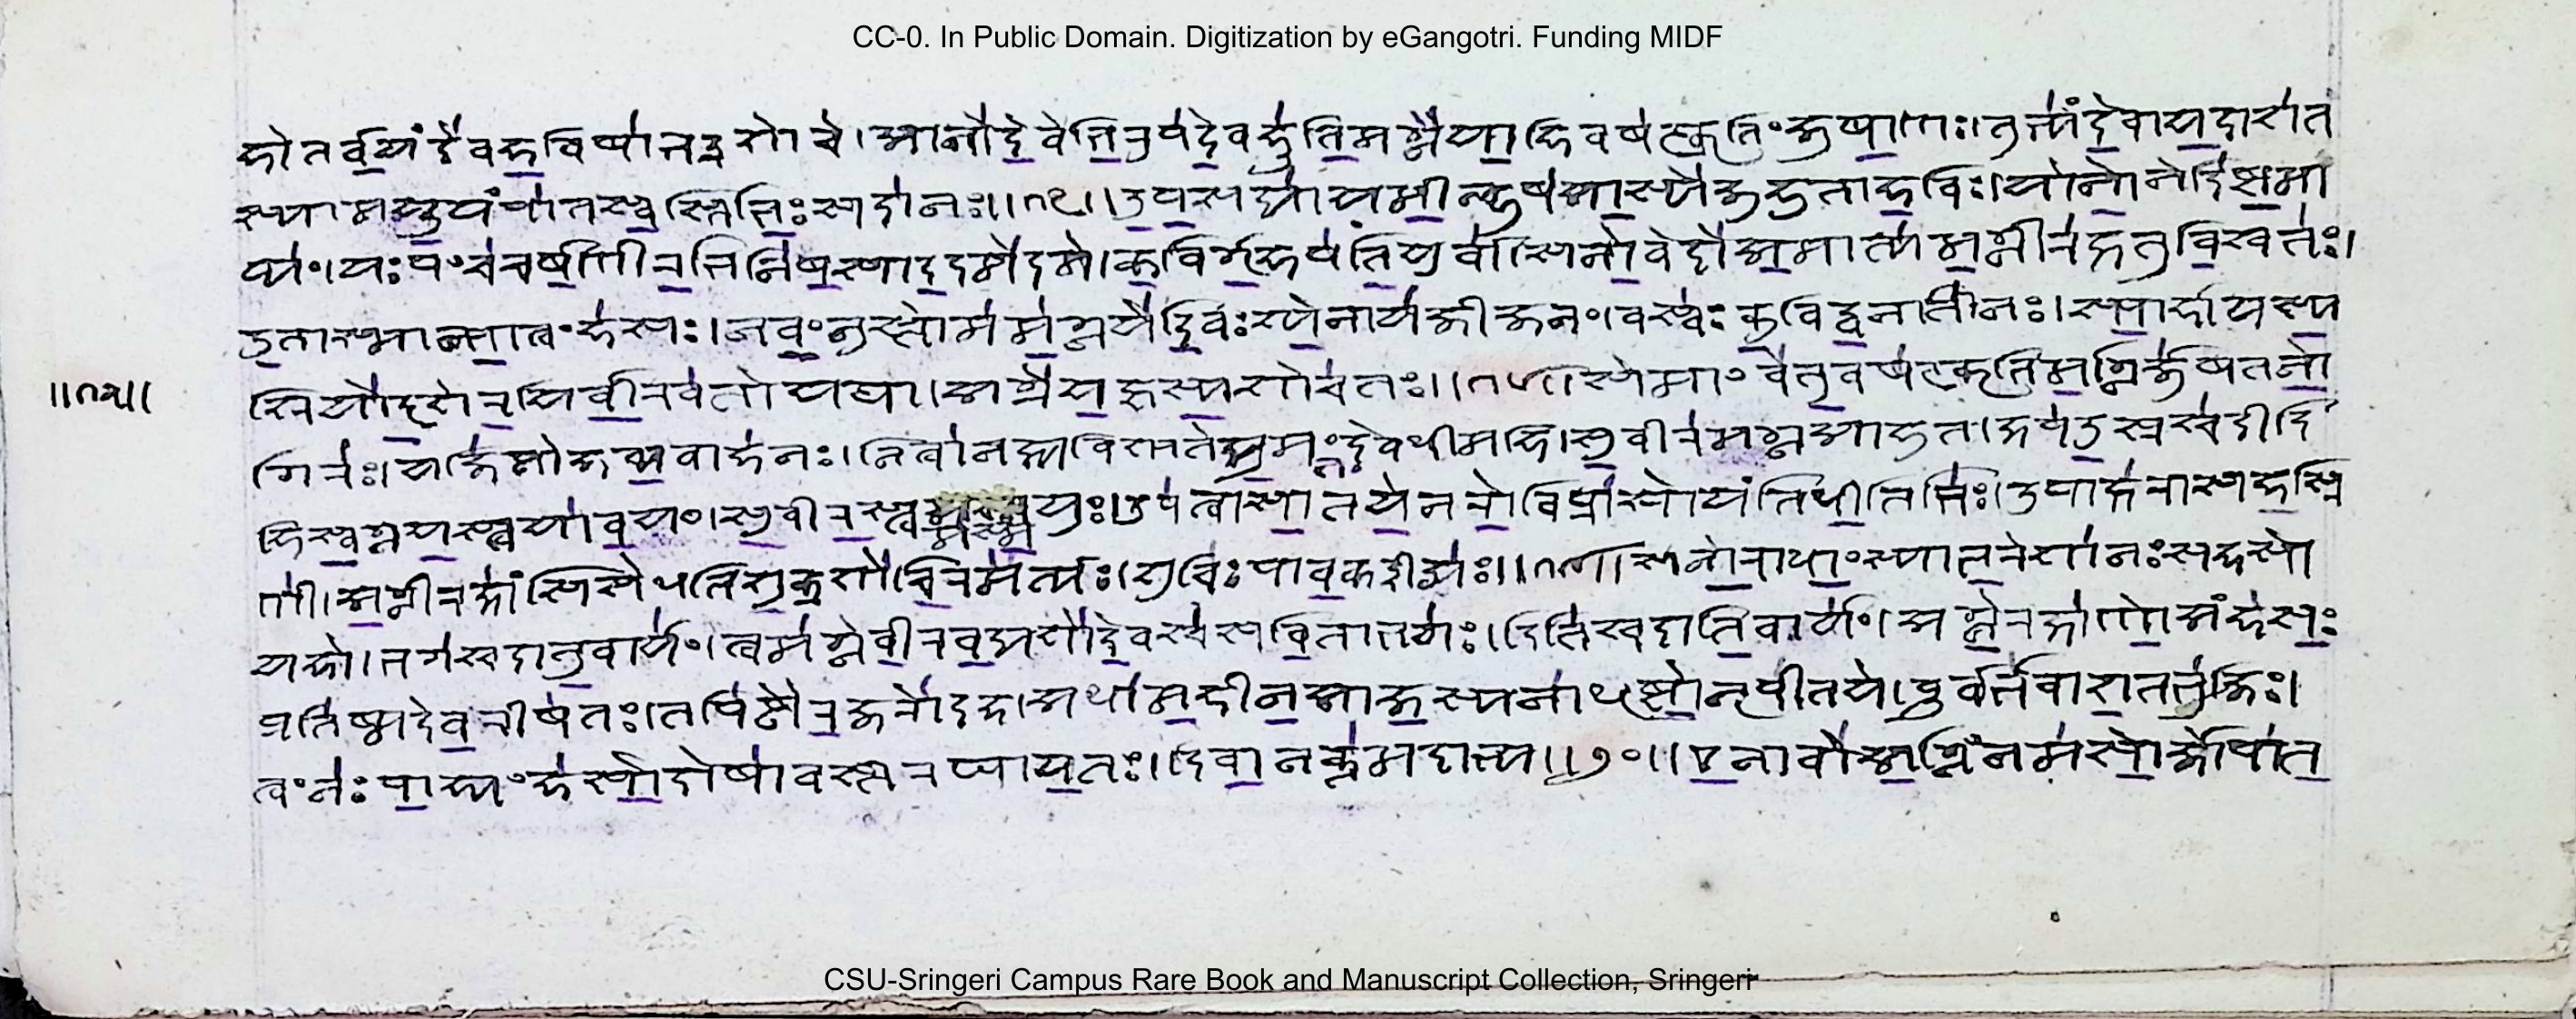 होतर्वयं देव हविषा भद्रशोचे । आ नो देवेभिरुप देवहूतिमग्ने याहि वषट्कृतिं जुषाणः । तुभ्यं देवाय दाशतः
स्याम यूयं पात स्वस्तिभिः सदा नः ॥ १७ ॥ उपसद्याय मीळ्हुष आस्ये जुहुता हविः । यो नो नेदिष्ठमा
प्यं । यः पंच चर्षणीरभि निषसाद दमेदमे । कविर्गृहपतिर्युवा । स नो वेदो अमात्यमग्नी रक्षतु विश्वतः ।
उतास्मान्पात्वंहसः । नवं नु स्तोममग्नये दिवः श्येनाय जीजनं । वस्वः कुविद्वनाति नः । स्पार्हा यस्य
श्रियो दृशे रयिर्वीरवतो यथा । अग्रे यज्ञस्य शोचतः ॥ १८ ॥ सेमां वेतु वषट्कृतिमग्निर्जुषत नो
गिरः । यजिष्ठो हव्यवाहनः । नि त्वा नक्ष्य विश्पते द्युमंतं देव धीमहि । सुवीरमग्न आहुत । क्षप उस्रश्च दीदि
हि स्वग्नयस्त्वया वयं । सुवीरस्त्वमस्मयुः । उप त्वा सातये नरो विप्रासो यंति धीतिभिः । उपाक्षरा सहस्रि
णी । अग्नी रक्षांसि सेधति शुक्रशोचिरमर्त्यः । शुचिः पावक ईड्यः ॥ १९ ॥ स नो राधांस्या भरेशानः सहसो
यहो । भगश्च दातु वार्यं । त्वमग्ने वीरवद्यशो देवश्च सविता भगः । दितिश्च दाति वार्यं । अग्ने रक्षा णो अंहसः
प्रति ष्म देव रीषतः । तपिष्ठैरजरो दह । अधा मही न आयस्यनाधृष्टो नृपीतये । पूर्भवा शतभुजिः ।
त्वं नः पाह्यंहसो दोषावस्तरघायतः । दिवा नक्तमदाभ्य ॥ २० ॥ एना वो अग्निं नमसोर्जो नपात
CC-0. In Public Domain. Digitization by eGangotri. Funding MIDF
CSU-Sringeri Campus Rare Book and Manuscript Collection, Sringeri